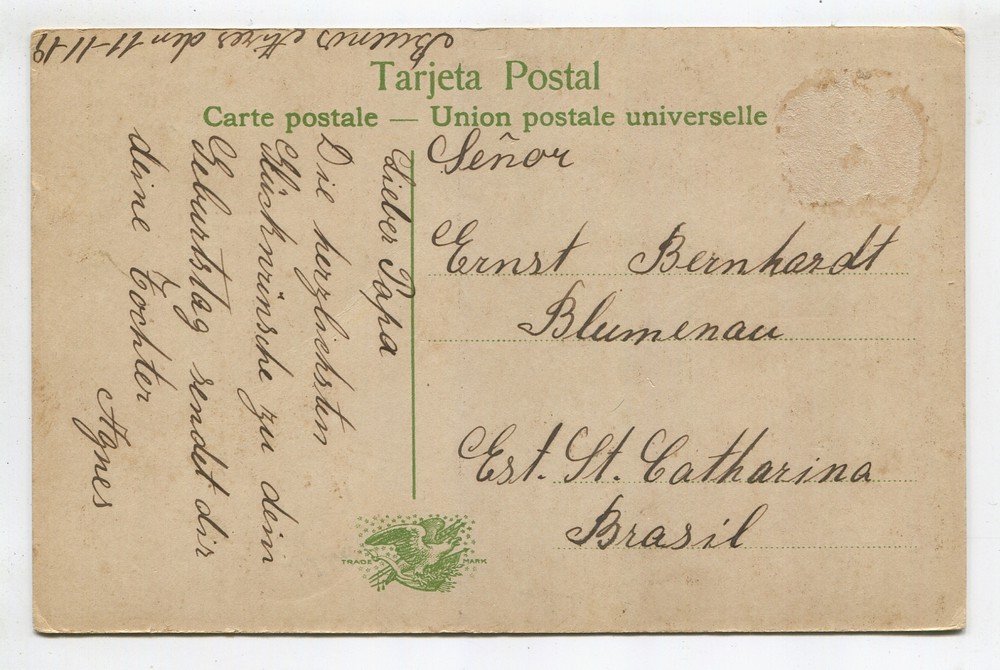 Buenos Aires den 11-11-19
Tarjeta Postal
Carte postale — Union postale universelle
Lieber Papa
Die herzlichsten
Glückwünsche zu dein
Geburtstag sendet dir
deine Tochter
Agnes
Señor
Ernst Bernhardt
Blumenau
Est. St. Catharina
Brasil
TRADE MARK